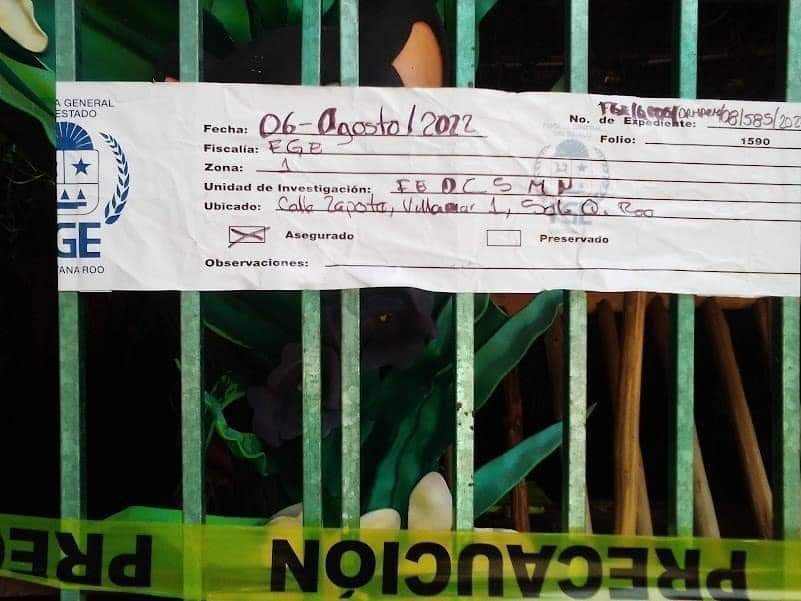 A GENERAL
ESTADO
GE
TANA ROO
Fecha: 06-Agosto/2022
No. de Expediente: /08/585/202
Fiscalía: FGE
Folio: 1590
Zona: 1
Unidad de Investigación:
Ubicado: Calle Zapote, Villamar 1, Q. Roo
Asegurado
Preservado
Observaciones:
PRE
PRECAUCIÓN